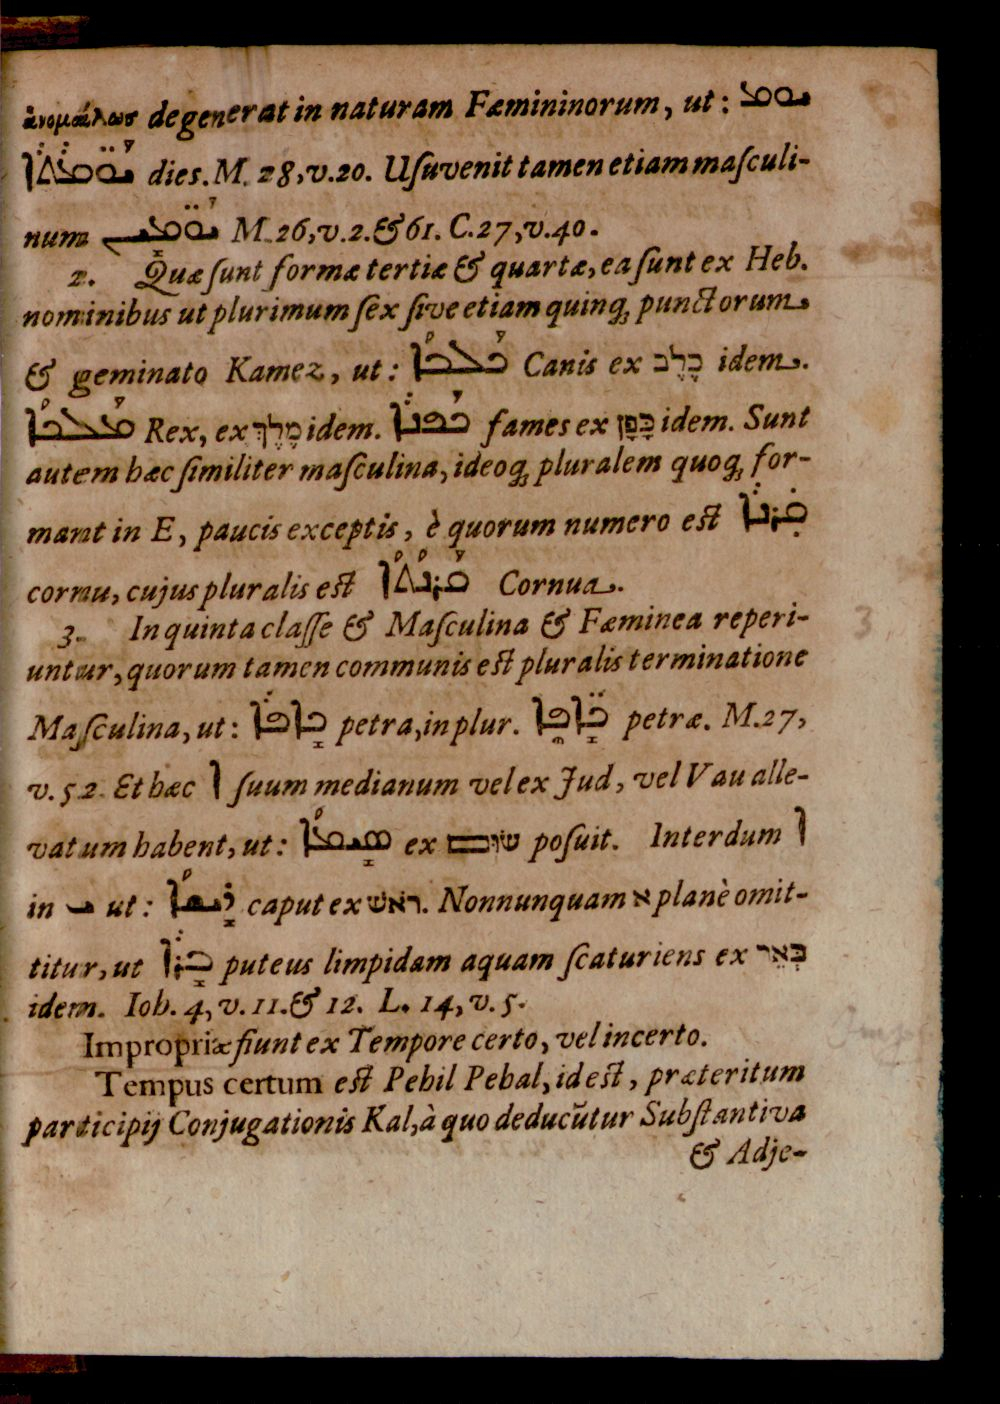 ἀνομάλως degenerat in naturam Fæmininorum, ut: ܝܘܡ
ܝܰܘ̈ܡܳܬܳܐ dies. M. 28, v. 20. Uſuvenit tamen etiam maſculi-
num ܝܰܘ̈ܡܺܝܢ M. 26, v. 2. & 61. C. 27, v. 40.
2. Quæ ſunt formæ tertiæ & quartæ, ea ſunt ex Heb.
nominibus ut plurimum ſex ſive etiam quinq; punctorum
& geminato Kamez, ut: ܟܰܠܒܳܐ Canis ex כָּלֶב idem.
ܡܰܠܟܳܐ Rex, ex מָלֶךְ idem. ܟܰܦܢܳܐ fames ex כָּפָן idem. Sunt
autem hæc ſimiliter maſculina, ideoq; pluralem quoq; for-
mant in E, paucis exceptis, è quorum numero eſt ܩܰܪܢܳܐ
cornu, cujus pluralis eſt ܩܰܪܢܳܬܳܐ Cornua.
3. In quinta claſſe & Maſculina & Fæminea reperi-
untur, quorum tamen communis eſt pluralis terminatione
Maſculina, ut: ܟܺܐܦܳܐ petra, in plur. ܟܺܐܦ̈ܶܐ petræ. M. 27,
v. 52. Et hæc ܐ ſuum medianum vel ex Jud, vel Vau alle-
vatum habent, ut: ܣܺܝܡܳܐ ex שׂוּם poſuit. Interdum ܐ
in ܝ ut: ܪܺܝܫܳܐ caput ex ראשׁ. Nonnunquam א planè omit-
titur, ut ܒܺܪܳܐ puteus limpidam aquam ſcaturiens ex בְּאֵר
idem. Ioh. 4, v. 11. & 12. L. 14, v. 5.
Impropriæ fiunt ex Tempore certo, vel incerto.
Tempus certum eſt Pehil Pehal, id eſt, præteritum
participij Conjugationis Kal, à quo deducũtur Subſtantiva
& Adje-